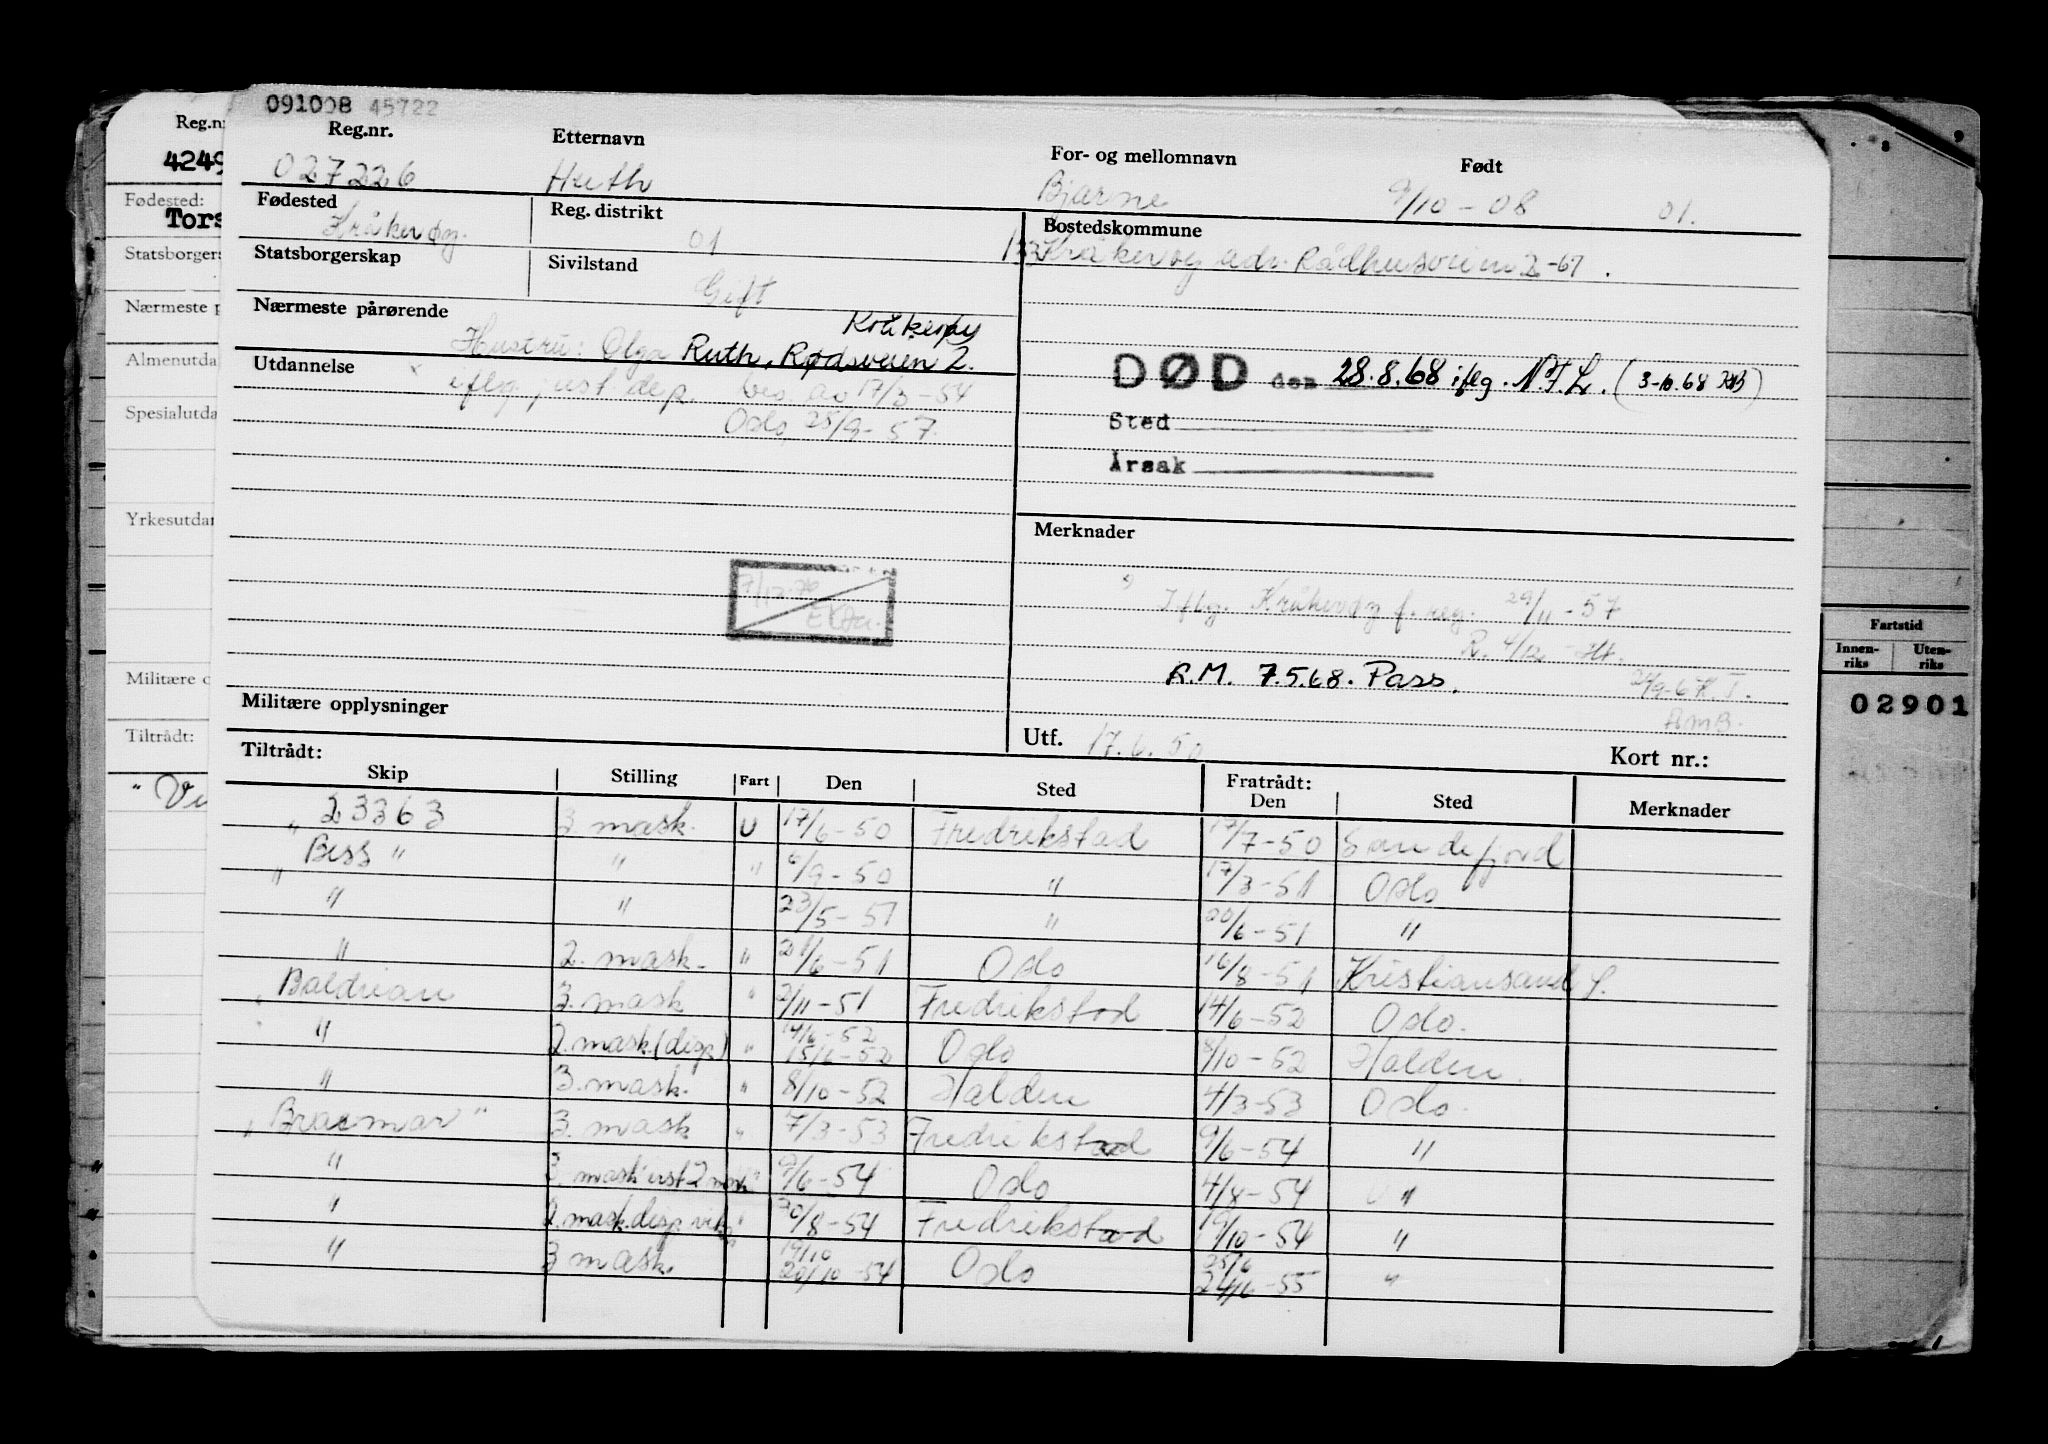 091008 45722
Reg.nr. Etternavn For- og mellomnavn Født
027226 Huth Bjarne 9/10-08 01.
Fødested Reg. distrikt Bostedskommune
Kråkerøy. 01 Kråkerøy adr. Rådhusveien 2 -67.
Statsborgerskap Sivilstand
Gift
Nærmeste pårørende
Kråkerøy
Hustru: Olga Ruth, Rødsveien 2.
Utdannelse
iflg. just dep. bev. av 17/3-54
Oslo 25/9-57.
DØD den 28.8.68 iflg. N.T.L. (3-10.68 RB)
Sted
Årsak
Merknader
Iflg. Kråkerøy f. reg. 29/11-57
R. 4/12
A.M. 7.5.68. Pass.
AMB.
7/12
Militære opplysninger
Utf. 17.6.50 Kort nr.:
Tiltrådt: Fratrådt:
Skip Stilling Fart Den Sted Den Sted Merknader
23363 3 mask. U 17/6-50 Fredrikstad 17/7-50 Sandefjord
" Bess " " " 6/9-50 " 17/3-51 Oslo
" " 23/5-51 " 20/6-51 "
" 2. mask. " 21/6-51 Oslo 16/8-51 Kristiansand S.
Baldrian 3. mask " 2/11-51 Fredrikstad 14/6-52 Oslo.
" 2. mask (disp) " 14/6-52 15/6-52 Oslo 8/10-52 Halden.
" 3. mask. " 8/10-52 Halden 4/3-53 Oslo.
" Braemar " 3. mask " 7/3-53 Fredrikstad 9/6-54 "
" 3. mask 2 mask " 9/6-54 Oslo 4/8-54 "
" 2. mask. disp. " 20/8-54 Fredrikstad 19/10-54 "
" 3 mask. 19/10 20/10-54 Oslo 25/6 24/6-55 "
Reg.nr
4249
Fødested:
Tors
Statsborgers
Nærmeste p
Almenutda
Spesialutda
Yrkesutdan
Militære o
Tiltrådt:
Fartstid
Innen-riks Uten-riks
02901